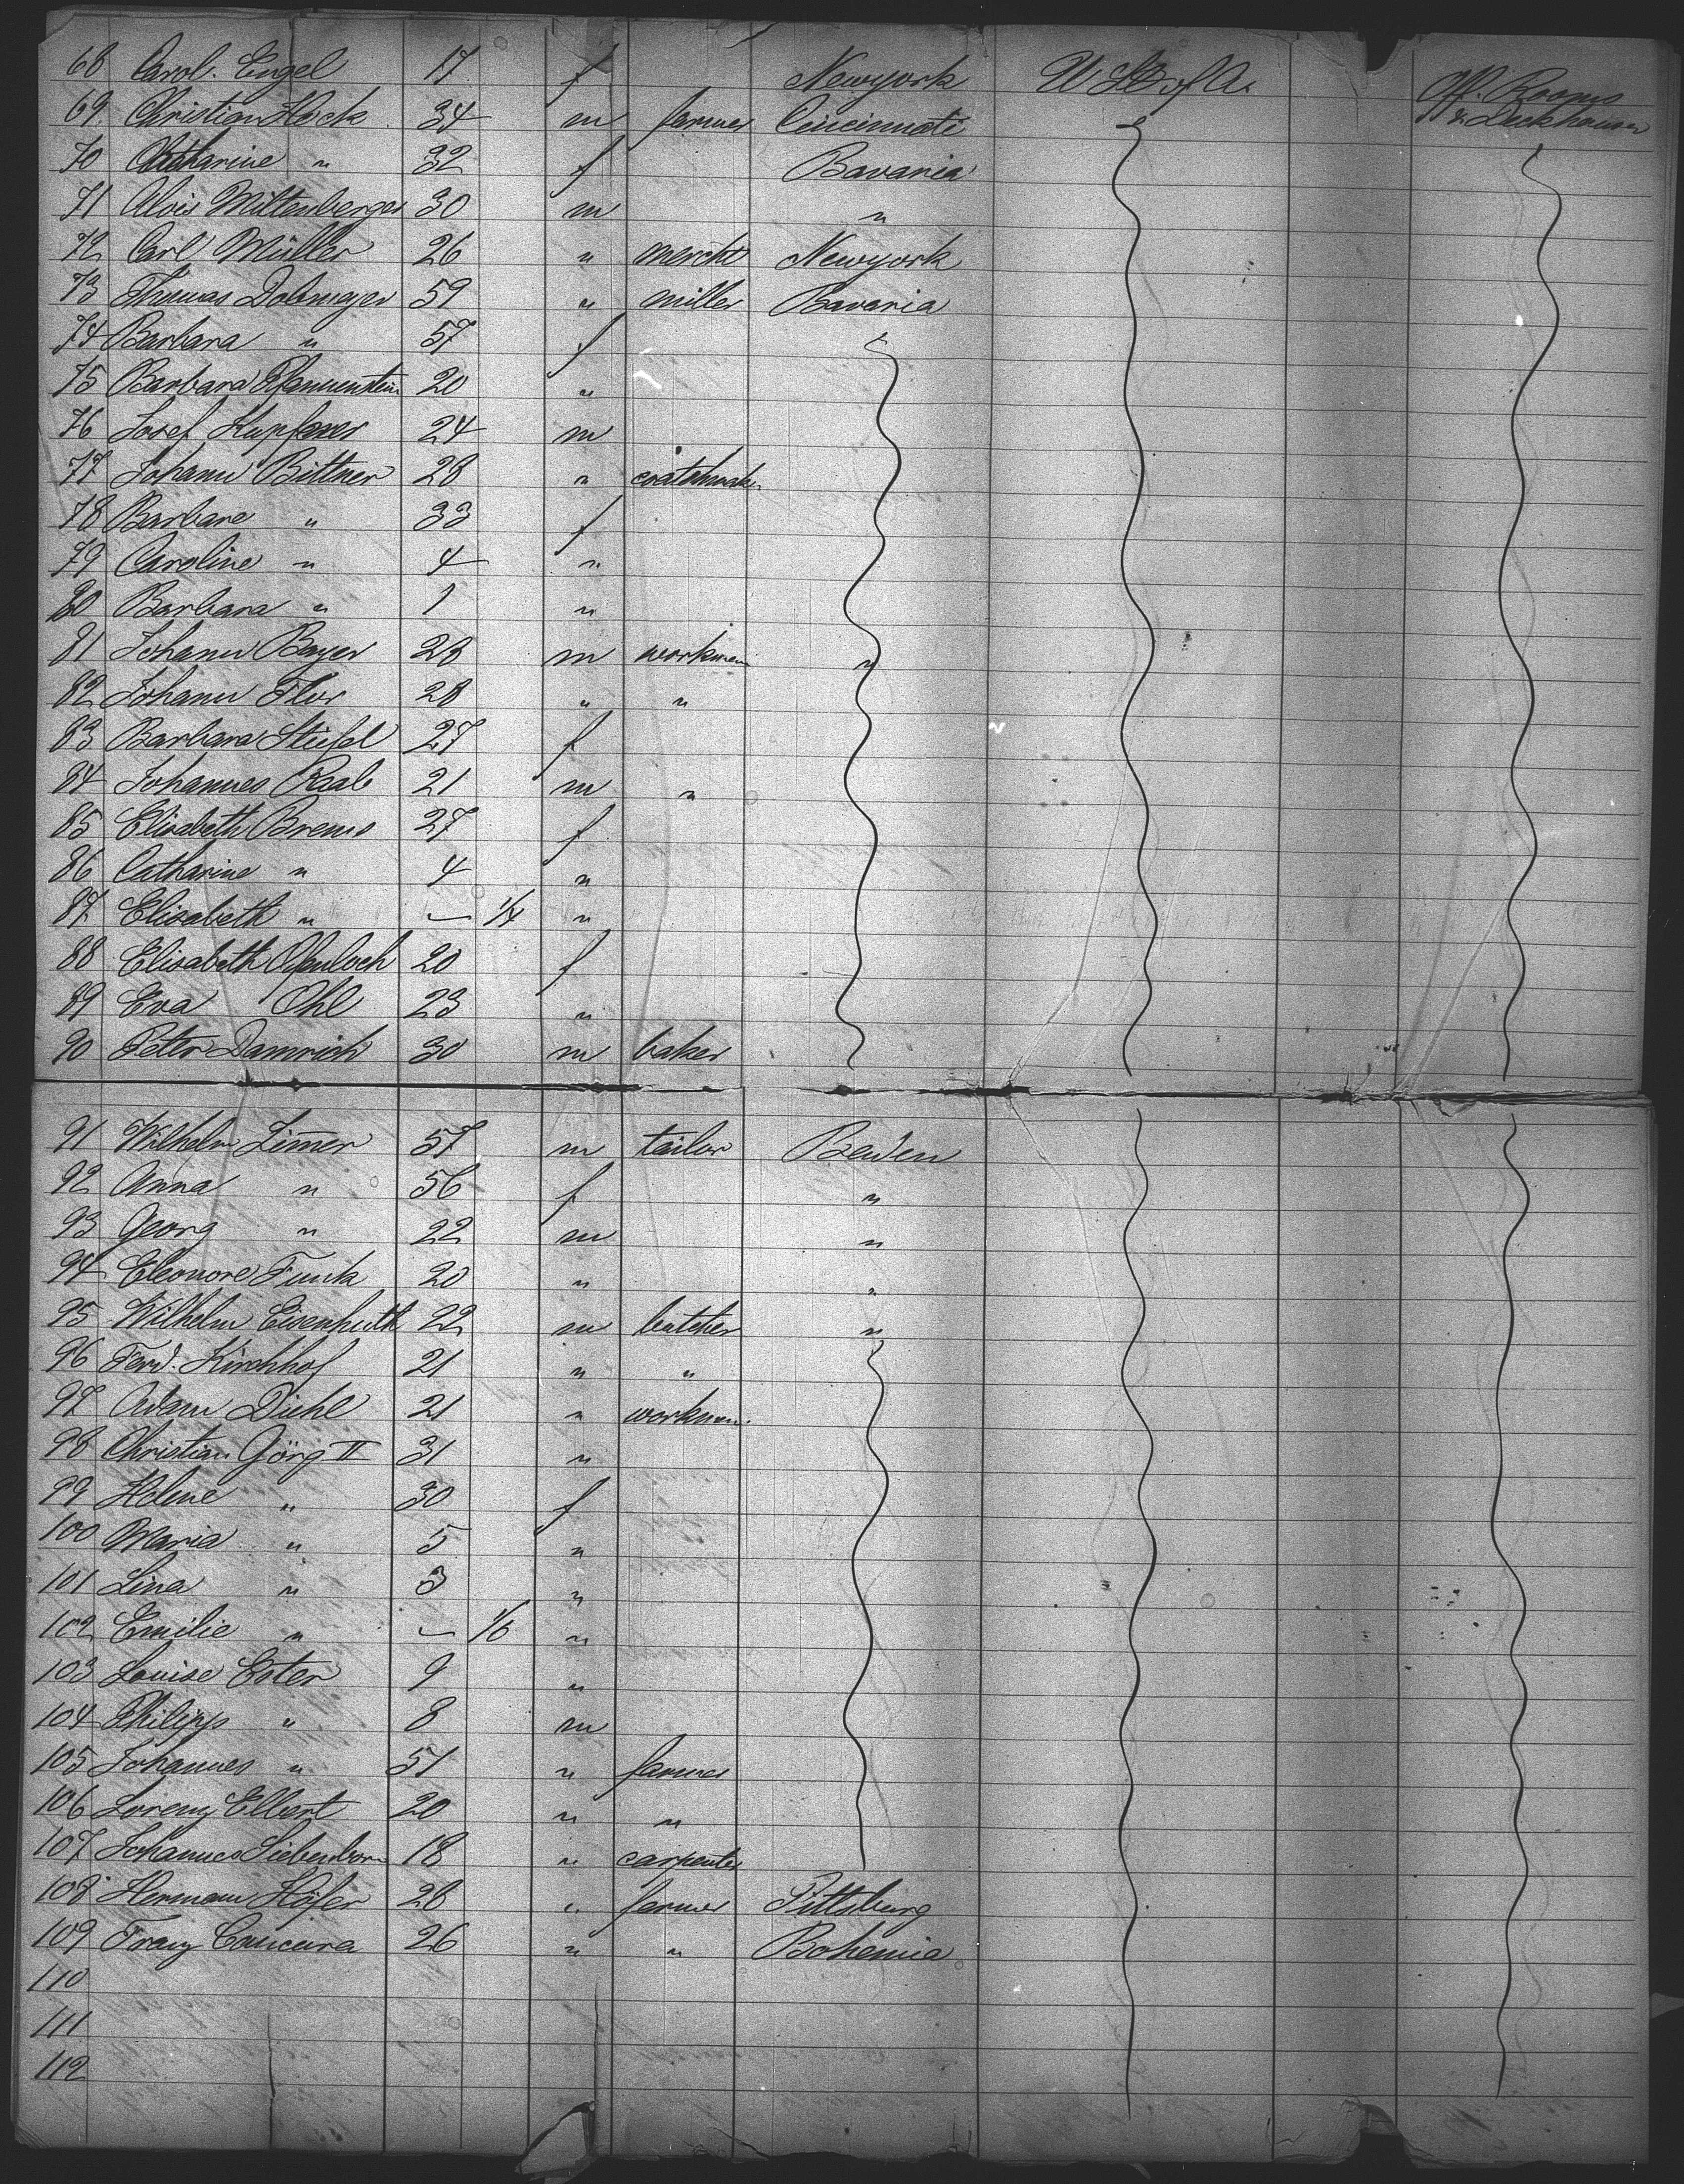 68 Carol. Engel 17 f Newyork U. St. of A. Off. Rooms
69. Christian Hock 34 m farmer Cincinnati & Deckhouses
70 Catharine " 32 f Bavaria
71 Alois Miltenberger 30 m "
72 Carl Müller 26 " mercht Newyork
73 Thomas Dobmeyer 59 " miller Bavaria
74 Barbara " 57 f
75 Barbara Pfannenstein 20 "
76 Josef Kupferer 24 m
77 Johann Bittner 28 "
78 Barbara " 33 f
79 Caroline " 4 "
80 Barbara " 1 "
81 Johann Bayer 28 m workman "
82 Johann Flor 28 " "
83 Barbara Stiefel 27 f
84 Johannes Raab 21 m "
85 Elisabeth Brems 27 f
86 Catharine " 4 "
87 Elisabeth " — 1/4 "
88 Elisabeth Ofenloch 20 f
89 Eva Ohl 23 "
90 Peter Damrich 30 m baker
91 Wilhelm Limer 57 m tailor Baden
92 Anna " 56 f "
93 Georg " 22 m "
94 Eleonore Funk 20 " "
95 Wilhelm Eisenhuth 22 m butcher "
96 Ferd. Kirchhof 21 " "
97 Adam Diehl 21 " workman.
98 Christian Görg II 31 "
99 Helene " 30 f
100 Maria " 5 "
101 Lina " 3 "
102 Emilie " — 1/6 "
103 Louise Ester 9 "
104 Philipp " 8 m
105 Johannes " 51 " farmer
106 Lorenz Elbert 20 " "
107 Johannes Siebenborn 18 " carpenter
108 Hermann Höfer 28 " farmer Pittsburg
109 Franz Cancura 26 " " Bohemia
110
111
112